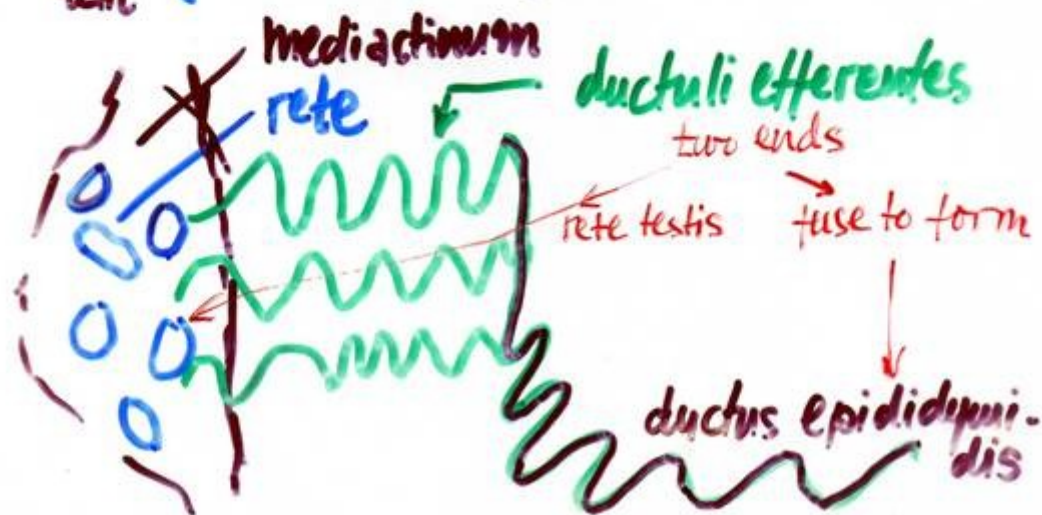 mediactinum
rete
ductuli efferentes
two ends
rete testis
fuse to form
ductus epididymi-
dis